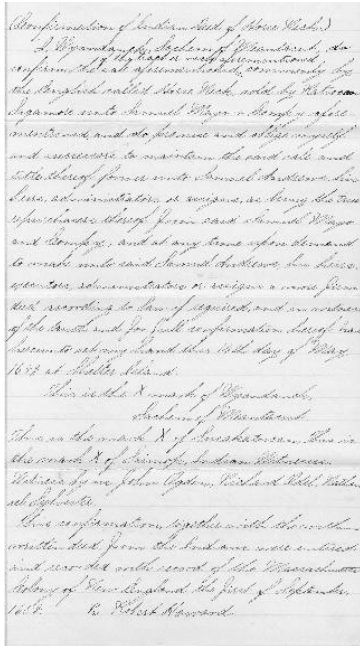 (Confirmation of Indian Deed of Horse Neck.)
I, Wyandanch, Sachem of Meantecut, do
of the tract or neck aforementioned
confirm the sale aforementioned, commonly by
the English called Horse Neck, sold by
Sagamore unto Samuel Mayo & Comp'y afore
mentioned, and do promise and oblige myself
and successors to maintain the said sale and
title thereof firm unto Samuel Andrews his
heirs, administrators or assigns, as being the true
repurchaser thereof from said Samuel Mayo
and Comp'y, and at any time upon demand
to make unto said Samuel Andrews, his heirs,
executors, administrators or assigns a more firm
deed according to law if required, and in witness
of the truth and for full confirmation hereof have
hereunto set my hand this 14th day of May
1658 at Shelter Island.
This is the X mark of Wyandanch,
Sachem of Meantecut
This is the mark X of This is
the mark X of Indian Witnesses
Witness by me John Ogden, Richard Nathan
iel Sylvester.
This confirmation, together with the
written deed from the Indians were entered
and recorded with record of the Massachusetts
Colony of New England the first of September
1658. Robert Howard